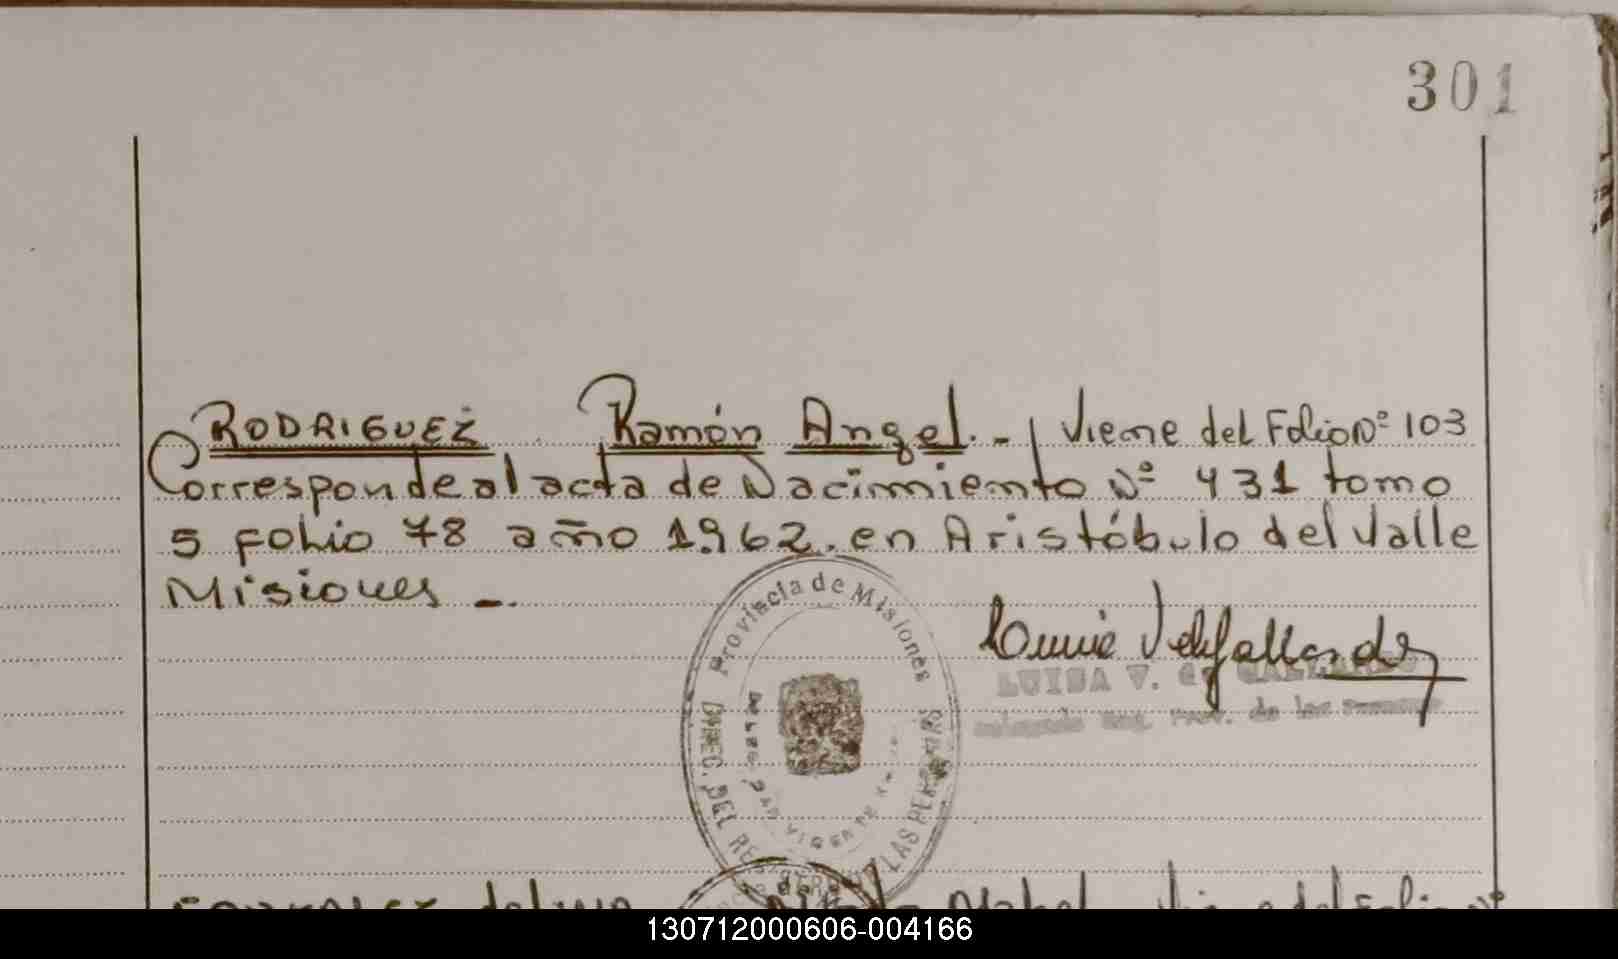 301
RODRIGUEZ Ramón Angel.- Viene del Folio Nº 103
Corresponde al acta de Nacimiento Nº 431 tomo
5 folio 78 año 1962. en Aristóbulo del Valle
Misiones -.
Provincia de Misiones
LUISA V. de
DIREC. DEL REG LAS PERSONAS
DELEG. SAN VICENTE
Mabel Viene del Folio Nº
130712000606-004166